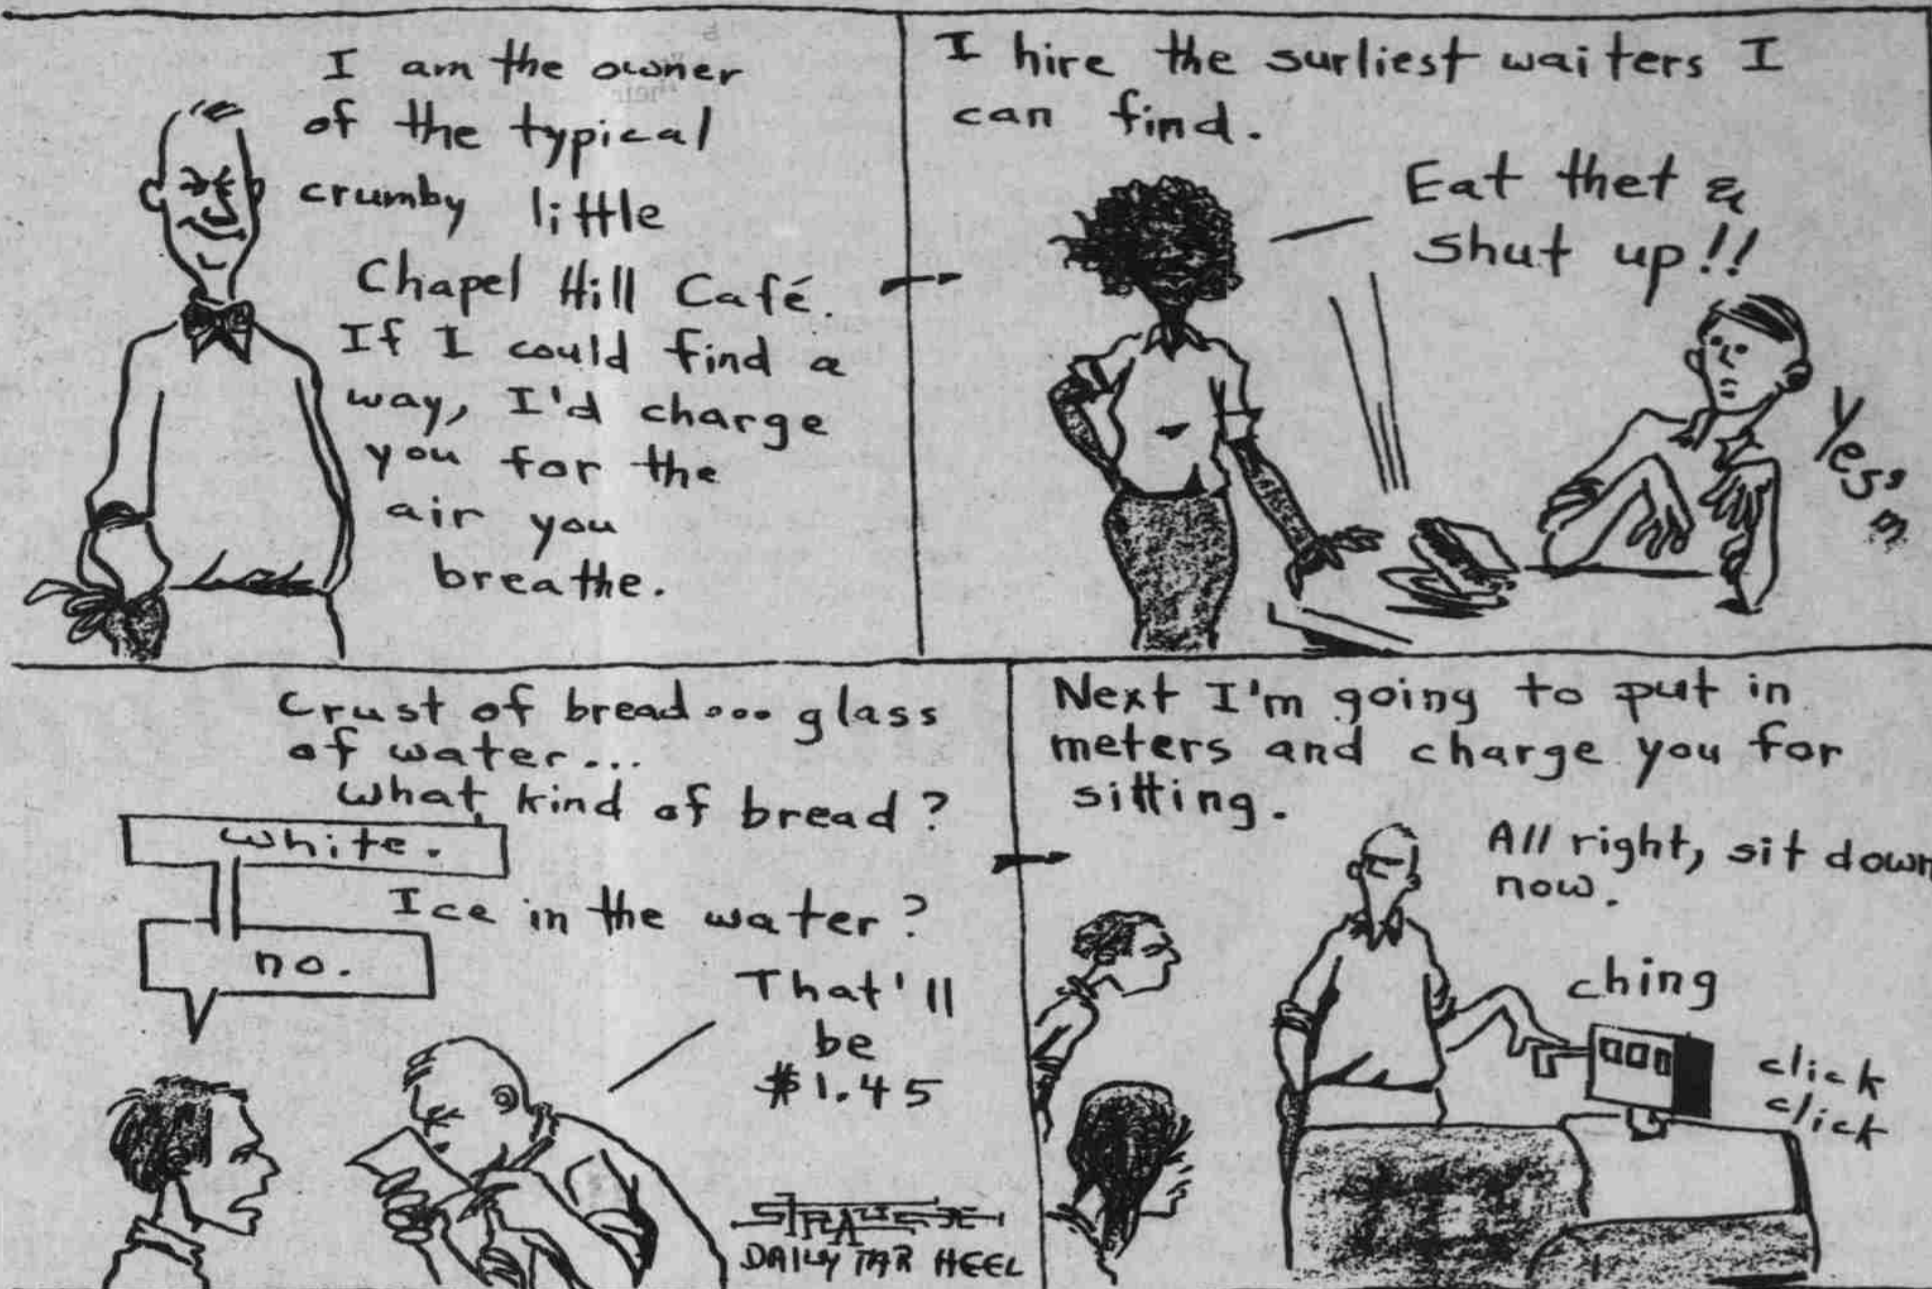 I am the owner
of the typical
crumby little
Chapel Hill Café.
If I could find a
way, I'd charge
you for the
air you
breathe.
I hire the surliest waiters I
can find.
Eat thet &
shut up!!
Yess m
Crust of bread... glass
of water...
What kind of bread?
white.
Ice in the water?
no.
That'll
be
$1.45
DAILY TAR HEEL
Next I'm going to put in
meters and charge you for
sitting.
All right, sit down
now.
ching
click
click